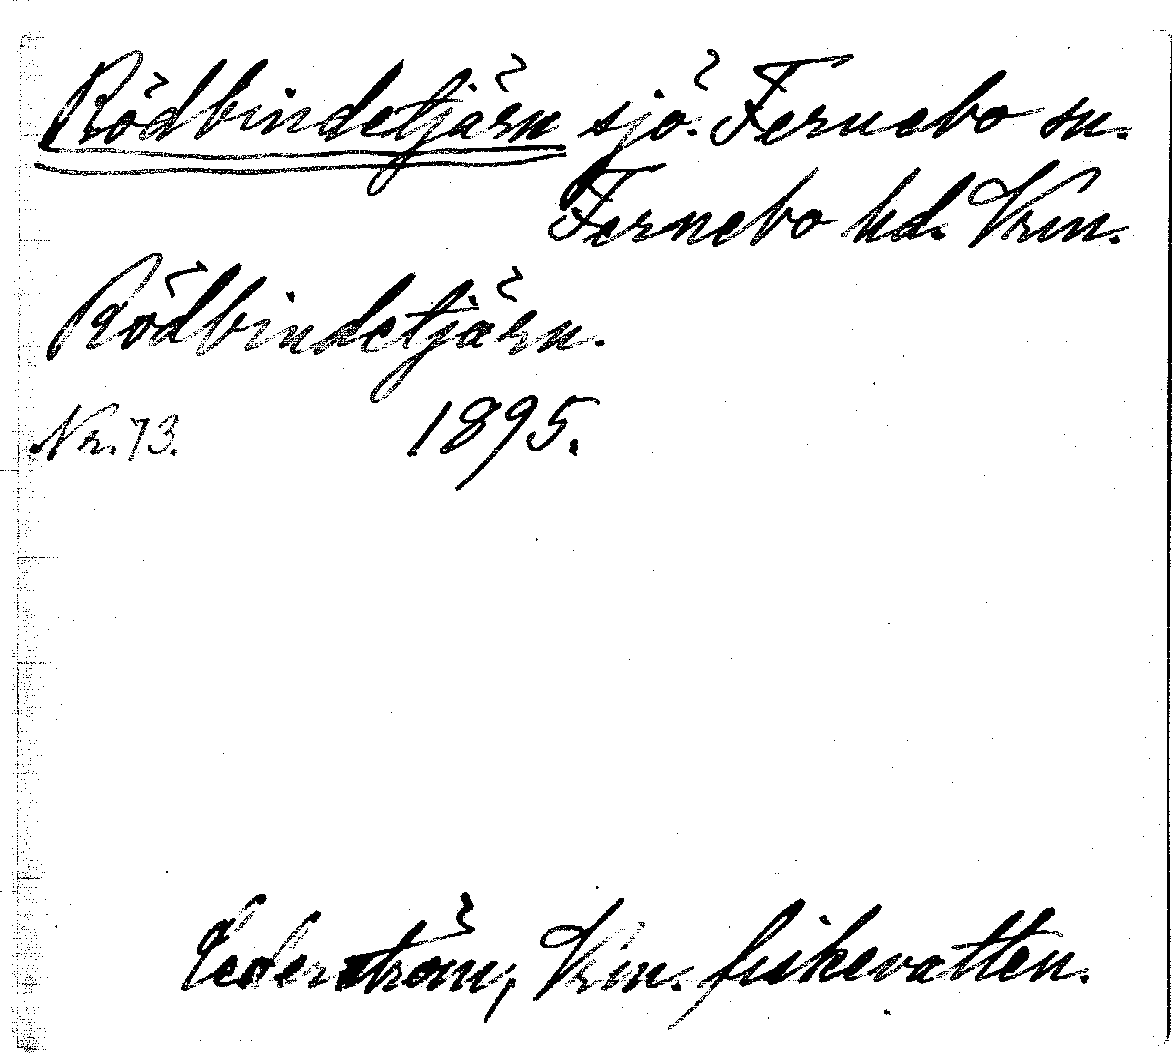 Rödbindetjärn sjö. Fernebo sn.
Fernebo hd. Vrm.
Rödbindetjärn.
Nr. 73. 1895.
Cederström, Vrm. fiskevatten.